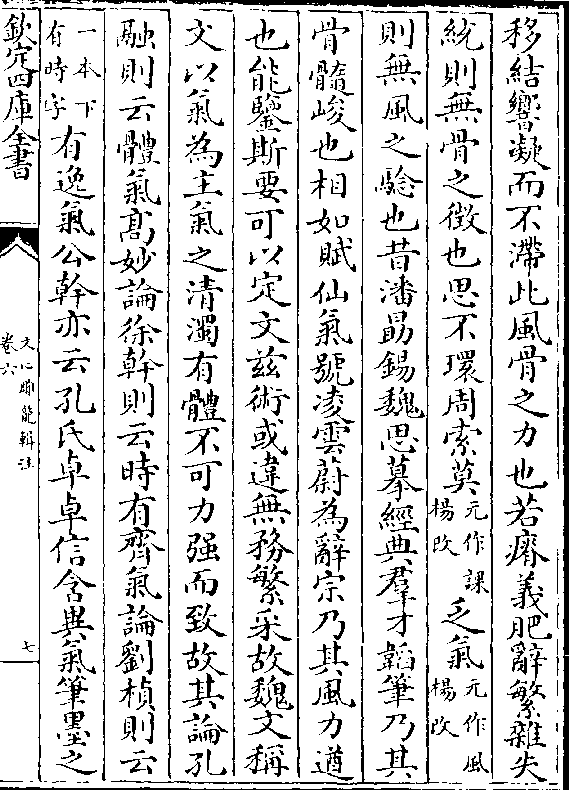 移結響凝而不滯此風骨之力也若瘠義肥辭繁雜失
統則無骨之徵也思不環周索莫元作課楊改乏氣元作風楊改
則無風之驗也昔潘勗錫魏思摹經典羣才韜筆乃其
骨髓峻也相如賦仙氣號凌雲蔚為辭宗乃其風力遒
也能鑒斯要可以定文兹術或違無務繁采故魏文稱
文以氣為主氣之清濁有體不可力强而致故其論孔
融則云體氣髙妙論徐幹則云時有齊氣論劉楨則云
一本下有時字有逸氣公幹亦云孔氏卓卓信含異氣筆墨之
欽定四庫全書
文心雕龍輯注
卷六
七